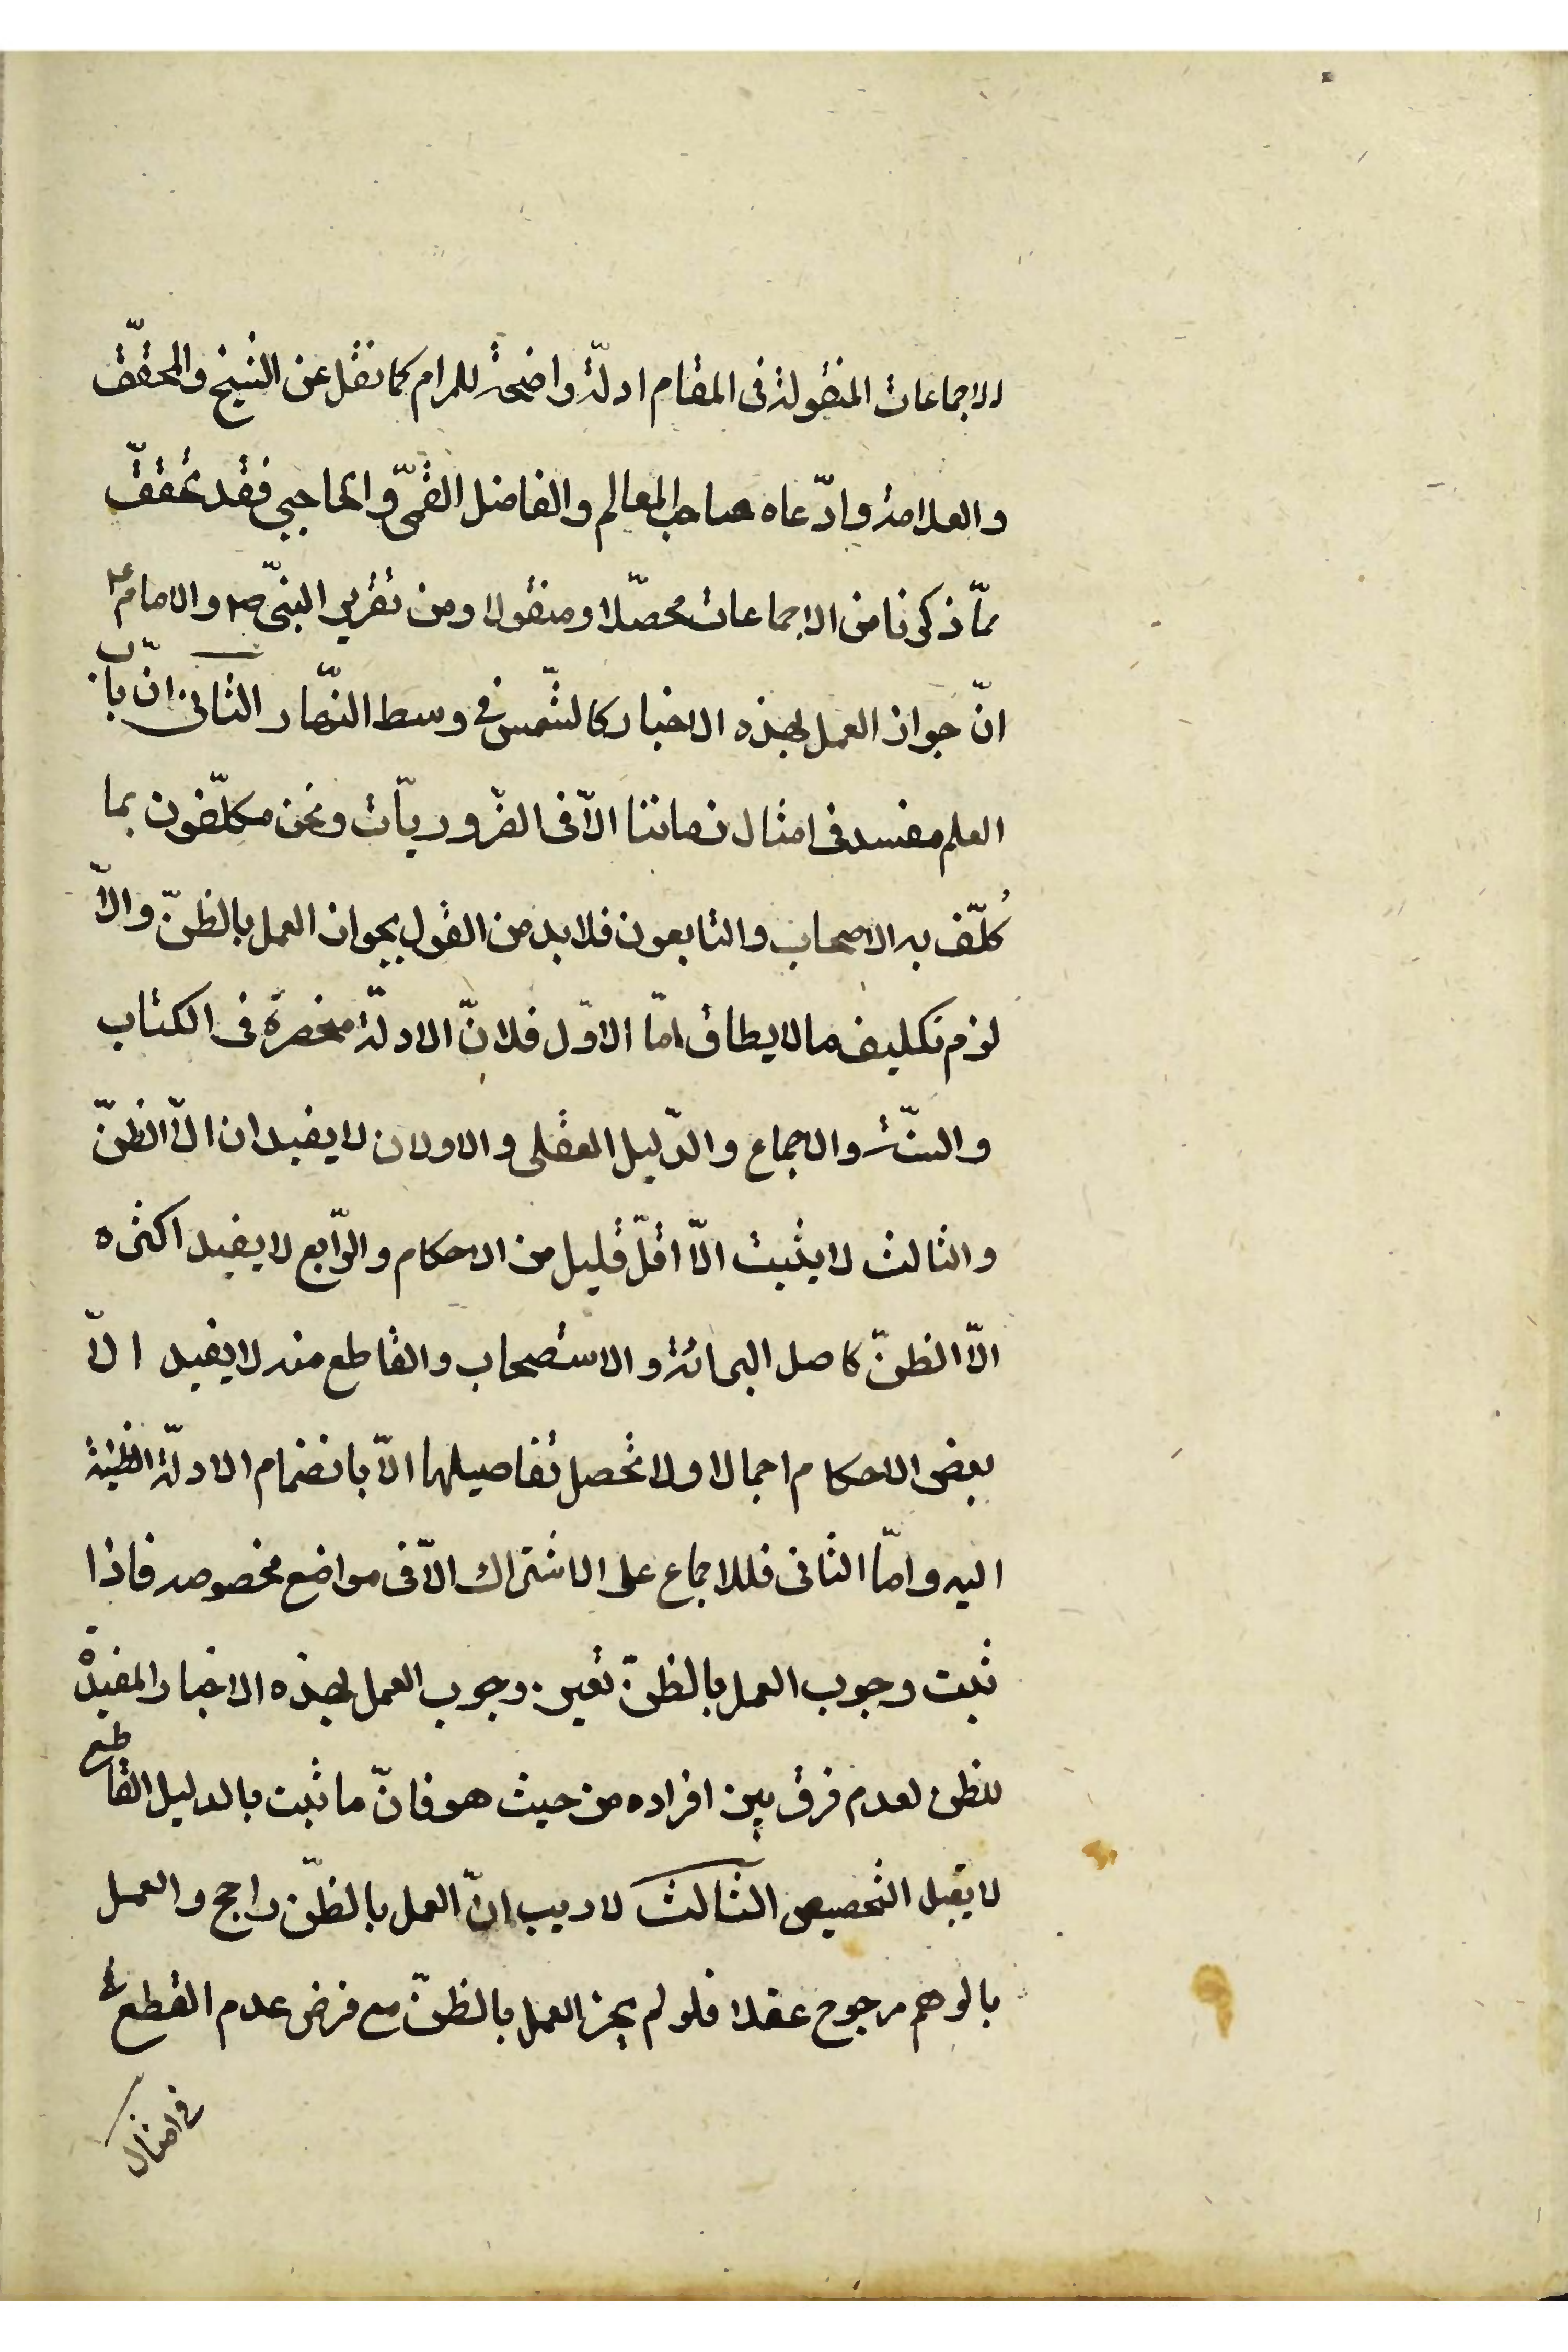 الاجماعات المنقولة فى المقام ادلّة واضحة للمرام كما نقل عن الشيخ والمحقّق
والعلامة وادّعاه صاحب المعالم والفاضل القمّى والحاجبى فقد تحقّق
ممّا ذكرنا من الاجماعات محصّلا ومنقولا ومن تقرير النبىّ ص والامام ع
انّ جواز العمل بهذه الاخبار كالشّمس فى وسط النّهار الثانى انّ باب
العلم منسد فى امثال زماننا الاّ فى الضّروريّات ونحن مكلّفون بما
كُلّف به الاصحاب والتابعون فلا بد من القول بجواز العمل بالظنّ والاّ
لزم تكليف ما لا يطاق امّا الاوّل فلانّ الادلّة منحصرة فى الكتاب
والسنّة والاجماع والدّليل العقلى والاولان لا يفيدان الاّ الظنّ
والثالث لا يثبت الاّ اقلّ قليل من الاحكام والرّابع لا يفيد اكثره
الاّ الظنّ كاصل البرائة والاستصحاب والقاطع منه لا يفيد الاّ
بعض الاحكام اجمالا ولا تحصل تفاصيلها الاّ بانضمام الادلّة الظنّية
اليه وامّا الثانى فللاجماع على الاشتراك الاّ فى مواضع مخصوصه فاذا
ثبت وجوب العمل بالظنّ تعين وجوب العمل بهذه الاخبار المفيدة
للظن لعدم فرق بين افراده من حيث هو فانّ ما ثبت بالدليل القاطع
لا يقبل التخصيص الثالث لا ريب انّ العمل بالظنّ راجح والعمل
بالوهم مرجوح عقلا فلو لم يجز العمل بالظنّ مع فرض عدم القطع
فى امثال